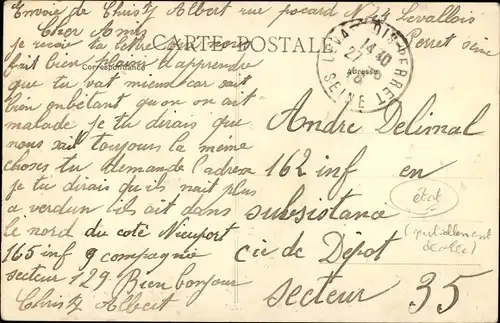 Envoie de Christ Albert rue pocard N 24 Levallois
Perret seine
Cher Ami
CARTE POSTALE
Correspondance
Adresse
LEVALLOIS-PERRET
14 40
27 - 8
SEINE
je reçoie ta lettre
fait bien plaisir d'apprendre
que tu vat mieux car sait
bien enbêtant qu'on on ait
malade je tu dirais que
nous sait toujours la meme
choses tu demande l'adrese
je tu dirais qu'ils nait plus
a verdun ils ait dans
le nord du coté Nieuport
165 inf 9 compagnie
secteur 129 Bien bonjour
Christ Albert
Andre Delimal
162 inf en
subsistance
cie de Dépot
secteur 35
état
(partiellement
décollée)